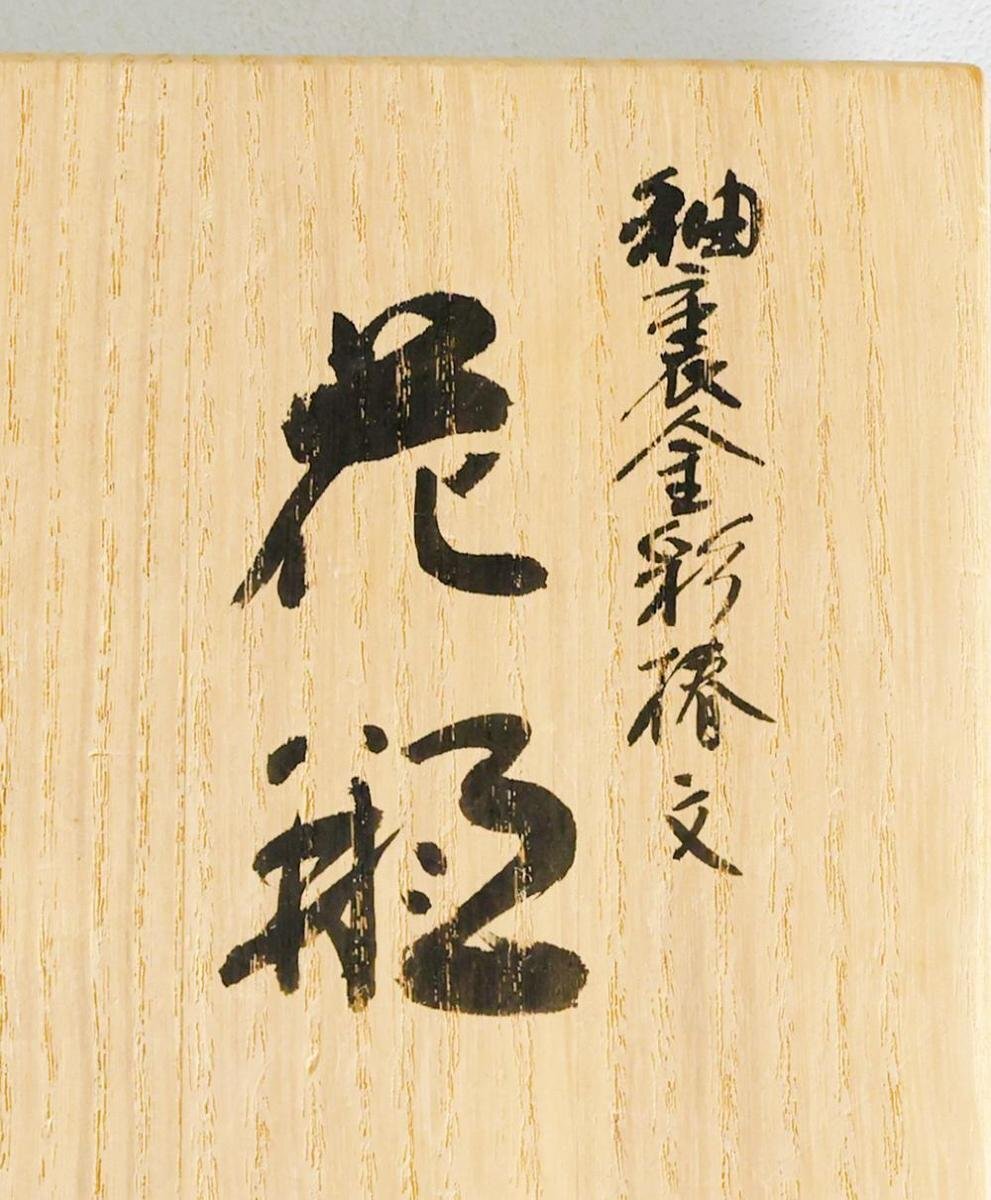 釉裏金彩椿文
花瓶